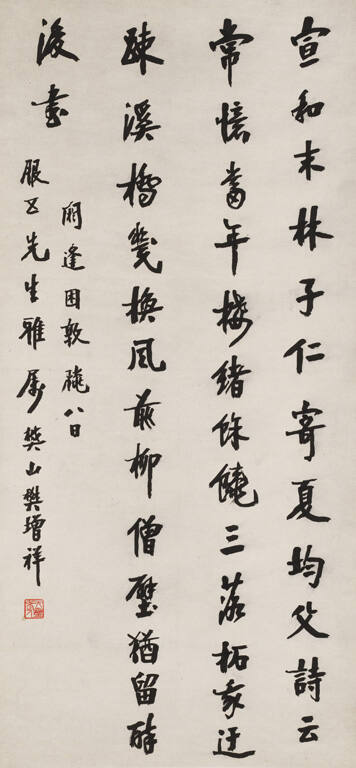 宣和末林子仁寄夏均父詩云
常憶當年接緒餘饒三落拓我迂
疎溪橋幾換風前柳僧壁猶留醉
後書
閼逢困敦臘八日
服五先生雅屬樊山樊增祥